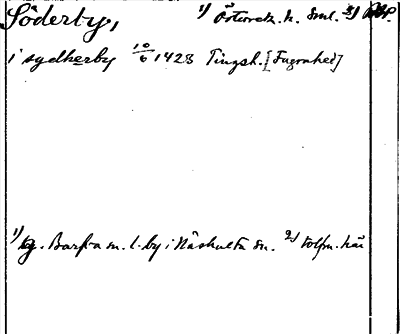 Söderby, 1) Österrek. h. Sml. 2)
i sydherby 10/6 1428 Tingsh. [Fugrahed]
1) g. Barfra sn. l. by i Näshulta sn. 2) tolfm. här